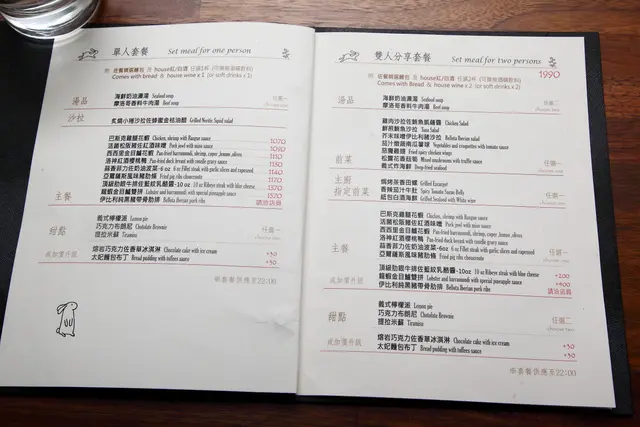 單人套餐 Set meal for one person
附 佐餐精緻麵包 及 house紅/白酒 任選1杯 (可換無酒精飲料)
Comes with Bread & house wine x 1 (or soft drinks x 1)
湯品
海鮮奶油濃湯 Seafood soup
摩洛哥香料牛肉湯 Beef soup
任選一
choose one
沙拉
炙燒小捲沙拉佐蜂蜜金桔油醋 Grilled Neritic Squid salad
主餐
巴斯克雞腿花蝦 Chicken, shrimp with Basque sauce 1070
活菌松阪豬佐紅酒味噌 Pork jowl with miso sauce 1090
西西里金目鱸花蝦 Pan-fried barramundi, shrimp, caper, lemon, olives 1130
洛神紅酒櫻桃鴨 Pan-fried duck breast with roselle gravy sauce 1130
蒜香菲力佐奶油波菜-6 oz 6 oz Fillet steak with garlic slices and rapeseed 1150
亞爾薩斯風味豬肋條 Fried pig ribs choucroute 1170
頂級肋眼牛排佐藍紋乳酪醬-10 oz 10 oz Ribeye steak with blue cheese 1370
龍蝦金目鱸雙拼 Lobster and barramundi with special pineapple sauce 1570
伊比利純黑豬帶骨肋排 Bellota Iberian pork ribs 請洽店員
甜點
義式檸檬派 Lemon pie
巧克力布朗尼 Chocolate Brownie
提拉米蘇 Tiramisu
任選一
choose one
或加價升級
熔岩巧克力佐香草冰淇淋 Chocolate cake with ice cream +30
太妃麵包布丁 Bread pudding with toffees sauce +30
※套餐供應至22:00
雙人分享套餐 Set meal for two persons
1990
附 佐餐精緻麵包 及 house紅/白酒 任選2杯 (可換無酒精飲料)
Comes with Bread & house wine x 2 (or soft drinks x 2)
湯品
海鮮奶油濃湯 Seafood soup
摩洛哥香料牛肉湯 Beef soup
任選二
choose two
前菜
雞肉沙拉佐鮪魚凱薩醬 Chicken Salad
鮮煎鮪魚沙拉 Tuna Salad
芥末味噌伊比利豬沙拉 Bellota Iberian salad
茄汁燉蔬南瓜薯球 Vegetables and croquettes with tomato sauce
惡魔雞翅 Fried spicy chicken wings
松露花香菇菊 Mixed mushrooms with truffle sauce
義式炸海鮮 Deep-fried seafood
任選一
choose one
主廚
指定前菜
焗烤茶香田螺 Grilled Escargot
香辣茄汁牛肚 Spicy Tomato Sauce Belly
紙包白酒海鮮 Grilled Seafood with White wine
任選一
choose one
主餐
巴斯克雞腿花蝦 Chicken, shrimp with Basque sauce
活菌松阪豬佐紅酒味噌 Pork jowl with miso sauce
西西里金目鱸花蝦 Pan-fried barramundi, shrimp, caper, lemon, olives
洛神紅酒櫻桃鴨 Pan-fried duck breast with roselle gravy sauce
蒜香菲力佐奶油波菜-6oz 6 oz Fillet steak with garlic slices and rapeseed
亞爾薩斯風味豬肋條 Fried pig ribs choucroute
任選一
choose one
或加價升級
頂級肋眼牛排佐藍紋乳酪醬-10oz 10 oz Ribeye steak with blue cheese +200
龍蝦金目鱸雙拼 Lobster and barramundi with special pineapple sauce +400
伊比利純黑豬帶骨肋排 Bellota Iberian pork ribs 請洽店員
甜點
義式檸檬派 Lemon pie
巧克力布朗尼 Chocolate Brownie
提拉米蘇 Tiramisu
任選二
choose two
或加價升級
熔岩巧克力佐香草冰淇淋 Chocolate cake with ice cream +30
太妃麵包布丁 Bread pudding with toffees sauce +30
※套餐供應至22:00